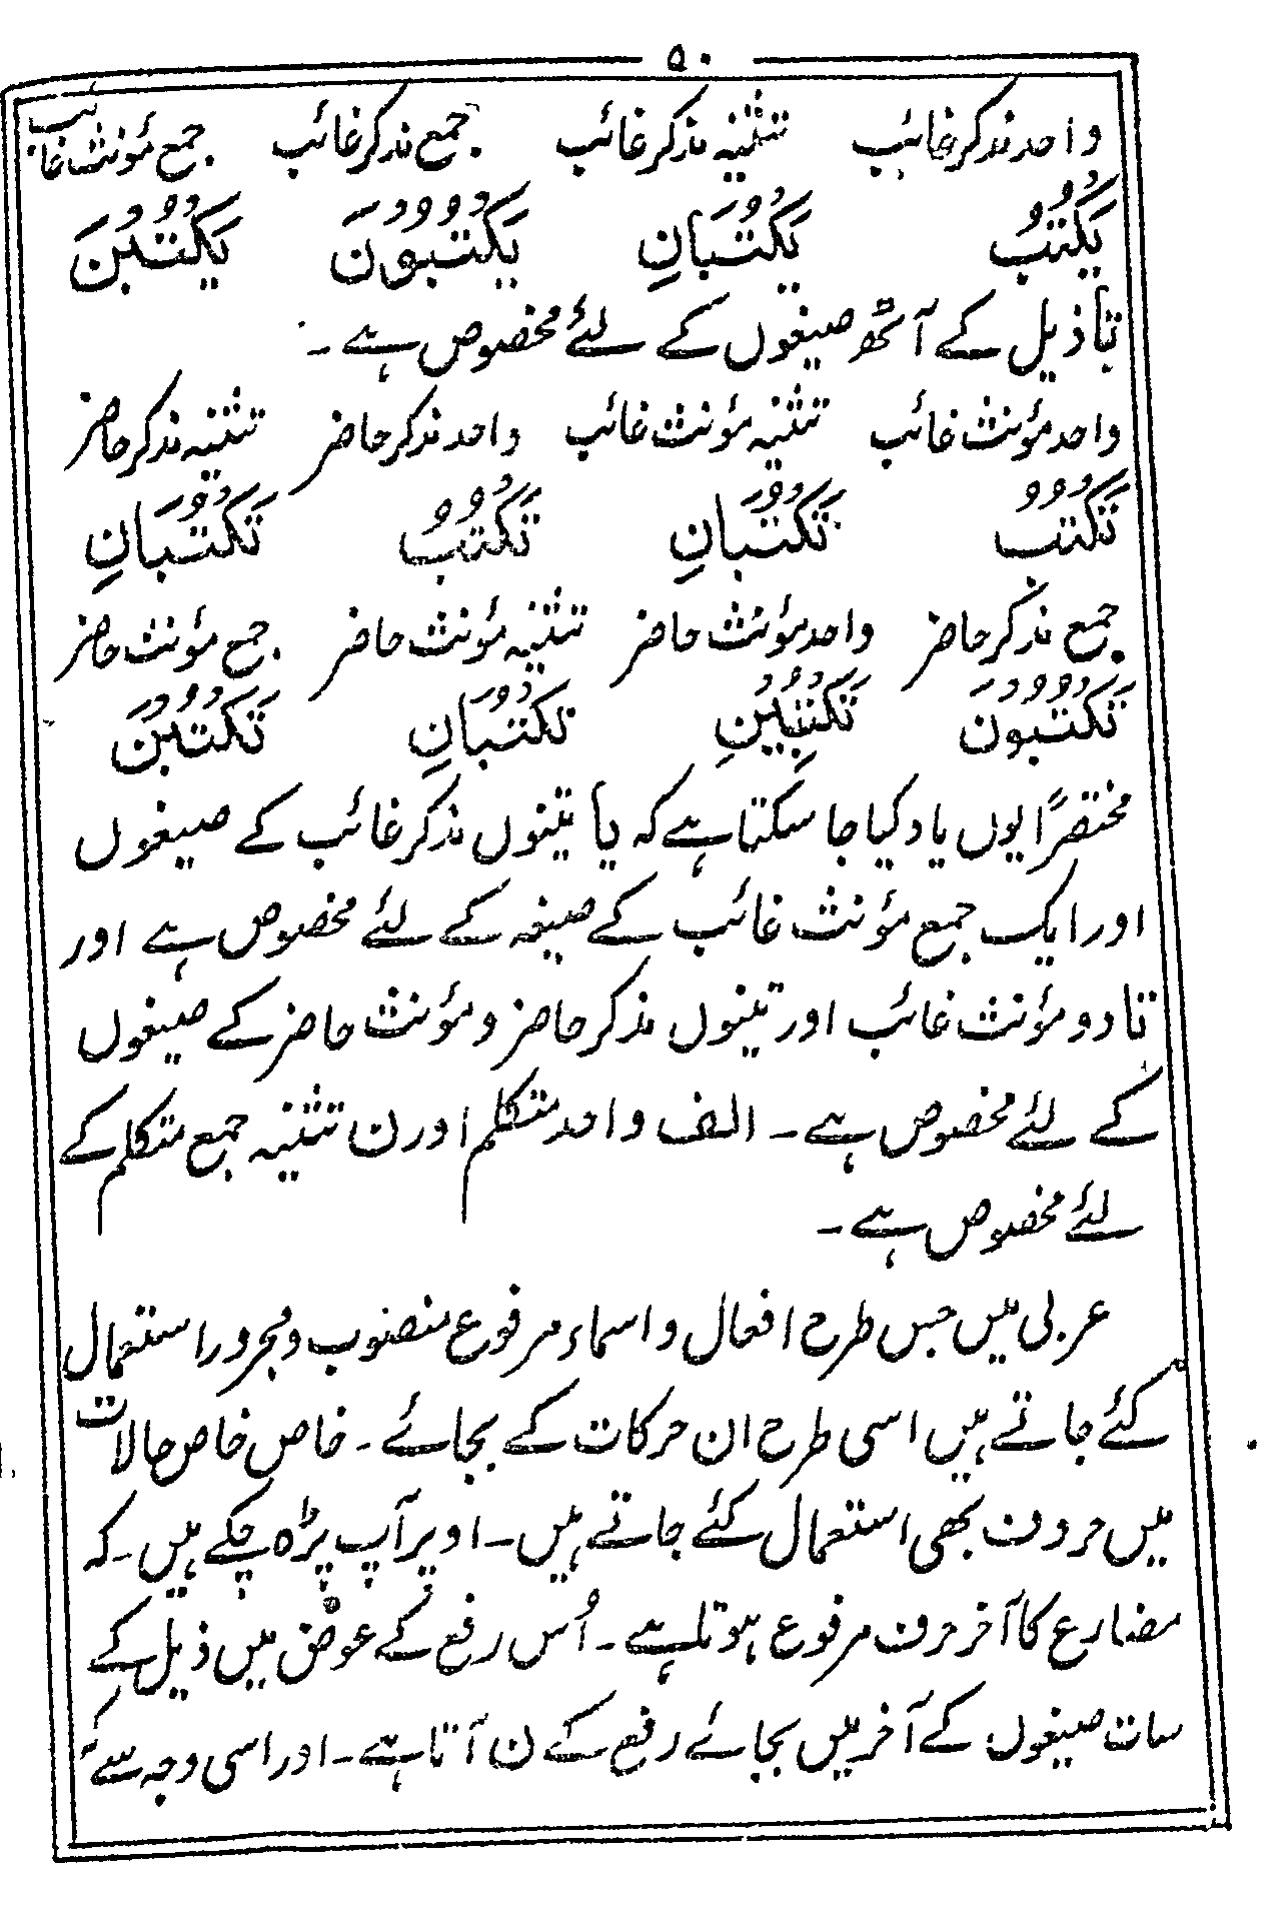 ۵۰
واحد مذکر غائب تثنیہ مذکر غائب جمع مذکر غائب جمع مؤنث غائب
یَکْتُبُ یَکْتُبَانِ یَکْتُبُوْنَ یَکْتُبْنَ
تا ذیل کے آٹھ صیغوں کے لئے مخصوص ہے ۔
واحد مؤنث غائب تثنیہ مؤنث غائب واحد مذکر حاضر تثنیہ مذکر حاضر
تَکْتُبُ تَکْتُبَانِ تَکْتُبُ تَکْتُبَانِ
جمع مذکر حاضر واحد مؤنث حاضر تثنیہ مؤنث حاضر جمع مؤنث حاضر
تَکْتُبُوْنَ تَکْتُبِیْنَ تَکْتُبَانِ تَکْتُبْنَ
مختصراً یوں یاد کیا جا سکتا ہے کہ یا تینوں مذکر غائب کے صیغوں
اور ایک جمع مؤنث غائب کے صیغہ کے لئے مخصوص ہے اور
تا دو مؤنث غائب اور تینوں مذکر حاضر و مؤنث حاضر کے صیغوں
کے لئے مخصوص ہے ۔ الف واحد متکلم اور ن تثنیہ جمع متکلم کے
لئے مخصوص ہے ۔
عربی میں جس طرح افعال و اسماء مرفوع منصوب و مجرور استعمال
کئے جاتے ہیں اسی طرح ان حرکات کے بجائے ۔ خاص خاص حالات
میں حروف بھی استعمال کئے جاتے ہیں ۔ اوپر آپ پڑھ چکے ہیں ۔ کہ
مضارع کا آخر حرف مرفوع ہوتا ہے ۔ اُس رفع کے عوض میں ذیل کے
سات صیغوں کے آخر میں بجائے رفع کے ن آتا ہے ۔ اور اسی وجہ سے